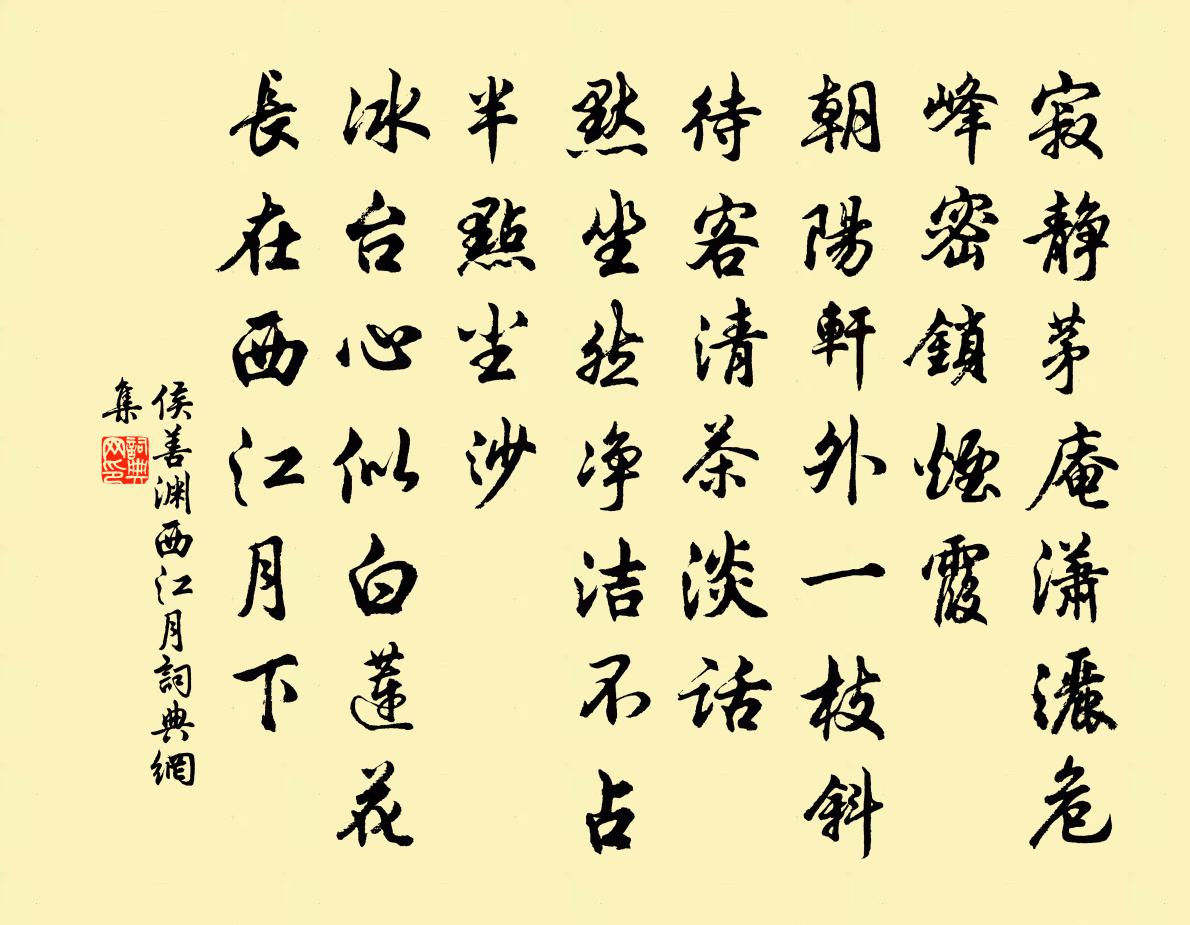 寂靜茅庵瀟灑危
峰密鎖煙霞
朝陽軒外一枝斜
待客清茶淡話
默坐然净洁不占
半點尘沙
冰台心似白蓮花
長在西江月下
侯善渊西江月詞典網
集
詞典网印